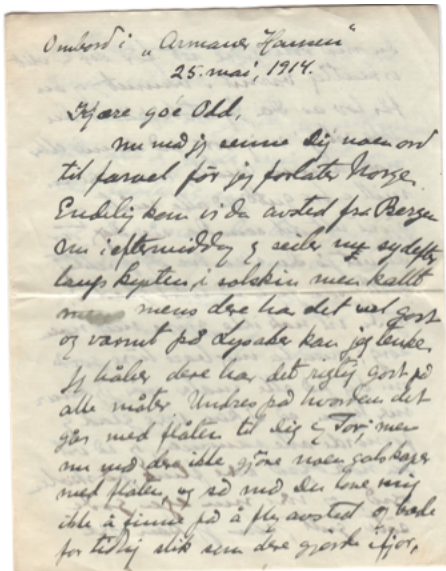 Ombord i „Armauer Hansen"
25. mai, 1914.
Kjære go'e Odd,
nu må jeg senne Dig noen ord
til farvel för jeg forlater Norge.
Endelig kom vi da avsted fra Bergen
nu i eftermiddag og seiler nu sydefter
langs kysten, i solskin men kallt
mens dere har det vel gost
og varmt på Lysaker kan jeg tenke.
Jeg håber dere har det rigtig gost på
alle måter. Undres på hvordan det
går med flåten til Dig og Tor; men
nu må dere ikke gjöre noen galskaper
med flåten, og så må Du love mig
ikke å finne på å fly avsted og bade
for tidlig slik som dere gjorde ifjor,